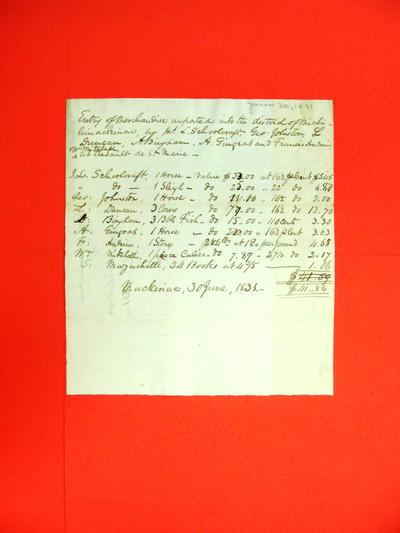 June 30, 1831
Entry of Merchandise imported into the district of Michi-
limackinac, by Jas L. Schoolcraft, Geo: Johnston, L
Duncan, A Bingham, A. Gingras and Francis Andrew
Wm Mitchell
at the Sault de St Marie –
J. L. Schoolcraft, 1 Horse – value $ 33.00 at 16½ pr cent $ 5.45
" do – 1 Sleigh – do 22 do
Geo: Johnston 1 Horse – do at 16½ do 2.00
L. Duncan, 3 Cows do 77.00 " 16½ do 12.70
A. Bingham, 3 Bbls Fish – do 15.00 " 110 cent 3.30
A. Gingras, 1 Horse – do 22.00 " 16½ pr cent 3.63
F: Andrew, 1 Stove – at per pound 4.68
Wm Mitchell, 1 piece Calico – do 7.87 " 27½ do 2.17
S. 24 Books at 1.06
$ 41.59
$ 41.86
Mackinac, 30 June, 1831. –